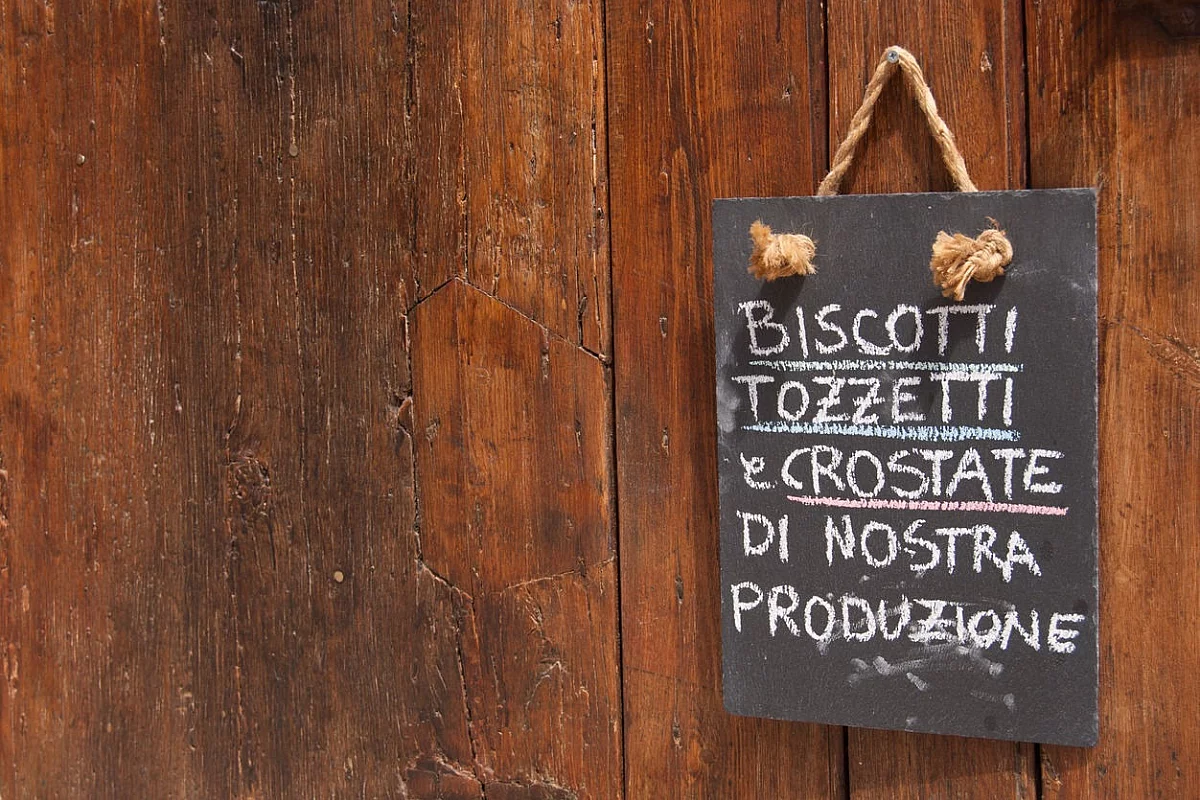 BISCOTTI
TOZZETTI
e CROSTATE
DI NOSTRA
PRODUZIONE